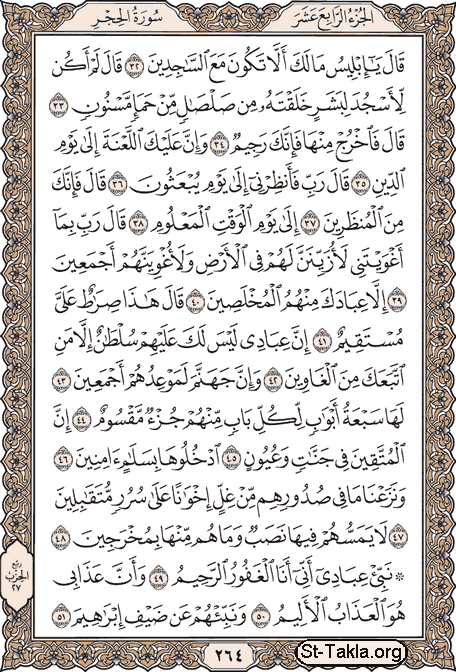 الجزء الرابع عشر
سورة الحجر
قَالَ يَٰٓإِبۡلِيسُ مَا لَكَ أَلَّا تَكُونَ مَعَ ٱلسَّٰجِدِينَ ٣٢ قَالَ لَمۡ أَكُن
لِّأَسۡجُدَ لِبَشَرٍ خَلَقۡتَهُۥ مِن صَلۡصَٰلٖ مِّنۡ حَمَإٖ مَّسۡنُونٖ ٣٣
قَالَ فَٱخۡرُجۡ مِنۡهَا فَإِنَّكَ رَجِيمٞ ٣٤ وَإِنَّ عَلَيۡكَ ٱللَّعۡنَةَ إِلَىٰ يَوۡمِ
ٱلدِّينِ ٣٥ قَالَ رَبِّ فَأَنظِرۡنِيٓ إِلَىٰ يَوۡمِ يُبۡعَثُونَ ٣٦ قَالَ فَإِنَّكَ
مِنَ ٱلۡمُنظَرِينَ ٣٧ إِلَىٰ يَوۡمِ ٱلۡوَقۡتِ ٱلۡمَعۡلُومِ ٣٨ قَالَ رَبِّ بِمَآ
أَغۡوَيۡتَنِي لَأُزَيِّنَنَّ لَهُمۡ فِي ٱلۡأَرۡضِ وَلَأُغۡوِيَنَّهُمۡ أَجۡمَعِينَ
٣٩ إِلَّا عِبَادَكَ مِنۡهُمُ ٱلۡمُخۡلَصِينَ ٤٠ قَالَ هَٰذَا صِرَٰطٌ عَلَيَّ
مُسۡتَقِيمٌ ٤١ إِنَّ عِبَادِي لَيۡسَ لَكَ عَلَيۡهِمۡ سُلۡطَٰنٌ إِلَّا مَنِ
ٱتَّبَعَكَ مِنَ ٱلۡغَاوِينَ ٤٢ وَإِنَّ جَهَنَّمَ لَمَوۡعِدُهُمۡ أَجۡمَعِينَ ٤٣
لَهَا سَبۡعَةُ أَبۡوَٰبٖ لِّكُلِّ بَابٖ مِّنۡهُمۡ جُزۡءٞ مَّقۡسُومٌ ٤٤ إِنَّ
ٱلۡمُتَّقِينَ فِي جَنَّٰتٖ وَعُيُونٍ ٤٥ ٱدۡخُلُوهَا بِسَلَٰمٍ ءَامِنِينَ ٤٦
وَنَزَعۡنَا مَا فِي صُدُورِهِم مِّنۡ غِلٍّ إِخۡوَٰنًا عَلَىٰ سُرُرٖ مُّتَقَٰبِلِينَ
٤٧ لَا يَمَسُّهُمۡ فِيهَا نَصَبٞ وَمَا هُم مِّنۡهَا بِمُخۡرَجِينَ ٤٨
۞ نَبِّئۡ عِبَادِيٓ أَنِّيٓ أَنَا ٱلۡغَفُورُ ٱلرَّحِيمُ ٤٩ وَأَنَّ عَذَابِي
هُوَ ٱلۡعَذَابُ ٱلۡأَلِيمُ ٥٠ وَنَبِّئۡهُمۡ عَن ضَيۡفِ إِبۡرَٰهِيمَ ٥١
ربع
الحزب
٢٧
٢٦٤
St-Takla.org